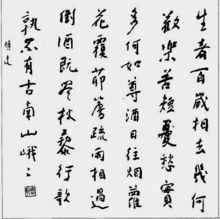 生者百歲相去幾何
歡樂苦短憂愁實
多何如尊酒日往烟蘿
花覆茆簷疏雨相過
倒酒既尽杖藜行歌
孰不有古南山峨〻
曠達